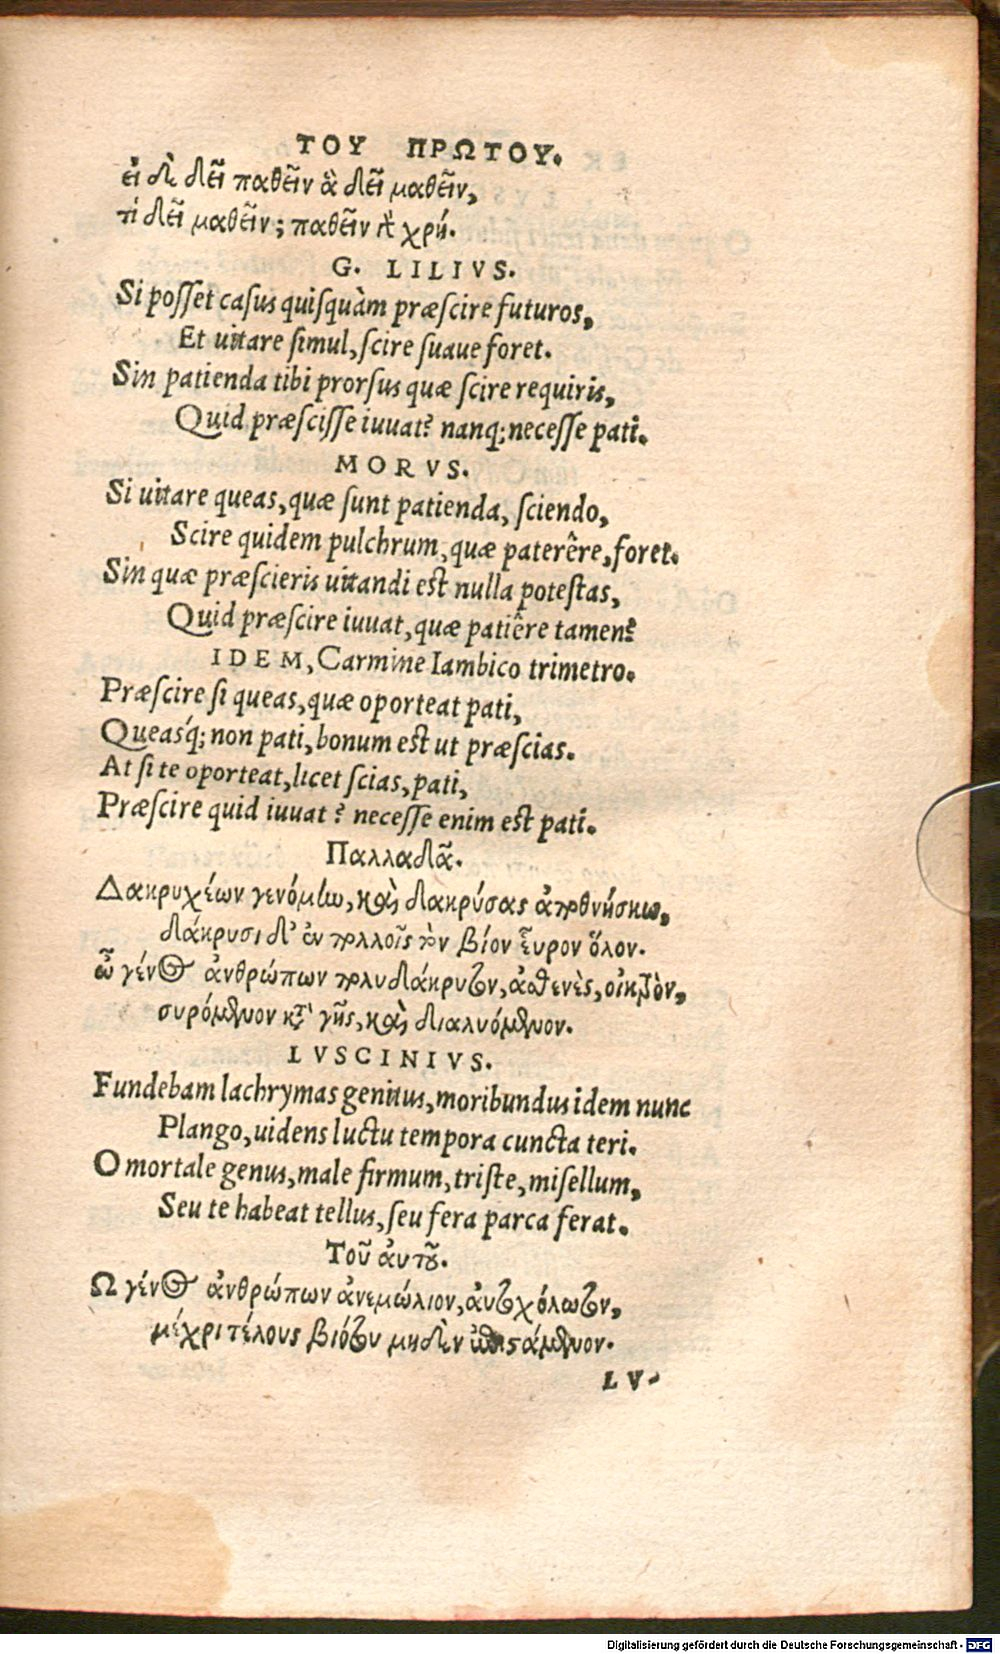 ΤΟΥ ΠΡΩΤΟΥ.
εἰ δὲ δεῖ παθεῖν ἃ δεῖ μαθεῖν,
τί δεῖ μαθεῖν; παθεῖν γὰρ χρή.
G. LILIVS.
Si poſſet caſus quiſquàm præſcire futuros,
Et uitare ſimul, ſcire ſuaue foret.
Sin patienda tibi prorſus quæ ſcire requiris,
Quid præſciſſe iuuat? nanq; neceſſe pati.
MORVS.
Si uitare queas, quæ ſunt patienda, ſciendo,
Scire quidem pulchrum, quæ paterêre, foret.
Sin quæ præſcieris uitandi eſt nulla poteſtas,
Quid præſcire iuuat, quæ patiêre tamen?
IDEM, Carmine Iambico trimetro.
Præſcire ſi queas, quæ oporteat pati,
Queasq́; non pati, bonum eſt ut præſcias.
At ſi te oporteat, licet ſcias, pati,
Præſcire quid iuuat? neceſſe enim eſt pati.
Παλλαδᾶ.
Δακρυχέων γενόμην, καὶ δακρύσας ἀποθνήσκω,
δάκρυσι δ' ἐν πολλοῖς τὸν βίον εὗρον ὅλον.
ὦ γένος ἀνθρώπων πολυδάκρυτον, ἀσθενὲς, οἰκτρὸν,
συρόμενον κατὰ γῆς, καὶ διαλυόμενον.
LVSCINIVS.
Fundebam lachrymas genitus, moribundus idem nunc
Plango, uidens luctu tempora cuncta teri.
O mortale genus, male firmum, triſte, miſellum,
Seu te habeat tellus, ſeu fera parca ferat.
Τοῦ αὐτοῦ.
Ω γένος ἀνθρώπων ἀνεμώλιον, αὐτοχόλωτον,
μέχρι τέλους βιότου μηδὲν ἐπιστάμενον.
LV-